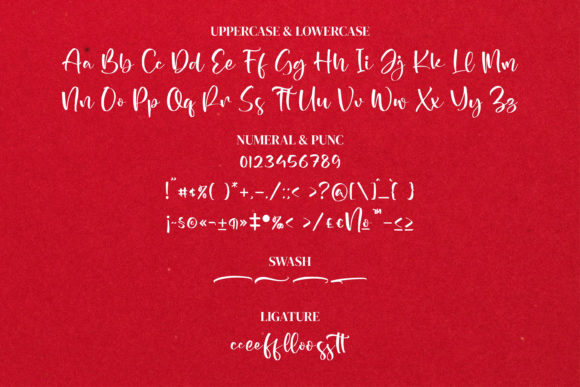 UPPERCASE & LOWERCASE
Aa Bb Cc Dd Ee Ff Gg Hh Ii Jj Kk Ll Mm
Nn Oo Pp Qq Rr Ss Tt Uu Vv Ww Xx Yy Zz
NUMERAL & PUNC
0123456789
!"#¢%( )*+,-./:;< >?@[\]^_`{ }
¡~§©«¬±¶»‡•‰< >/££№™−≤≥
SWASH
LIGATURE
cceefflloossttt